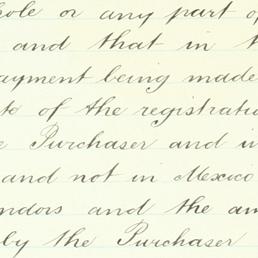 whole or any part of
and that in t
payment being made
to of the registratio
e Purchaser and i
and not in Mexico
endors and the am
by the Purchaser